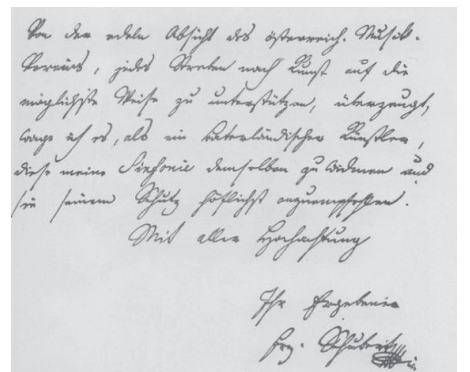 Von der edeln Absicht des österreich. Musik-
Vereins, jedes Streben nach Kunst auf die
möglichste Weise zu unterstützen, überzeugt,
wage ich es, als ein vaterländischer Künstler,
diese meine Sinfonie demselben zu widmen und
sie seinem Schutz höflichst anzuempfehlen.
Mit aller Hochachtung
Ihr Ergebener
Frz. Schubert